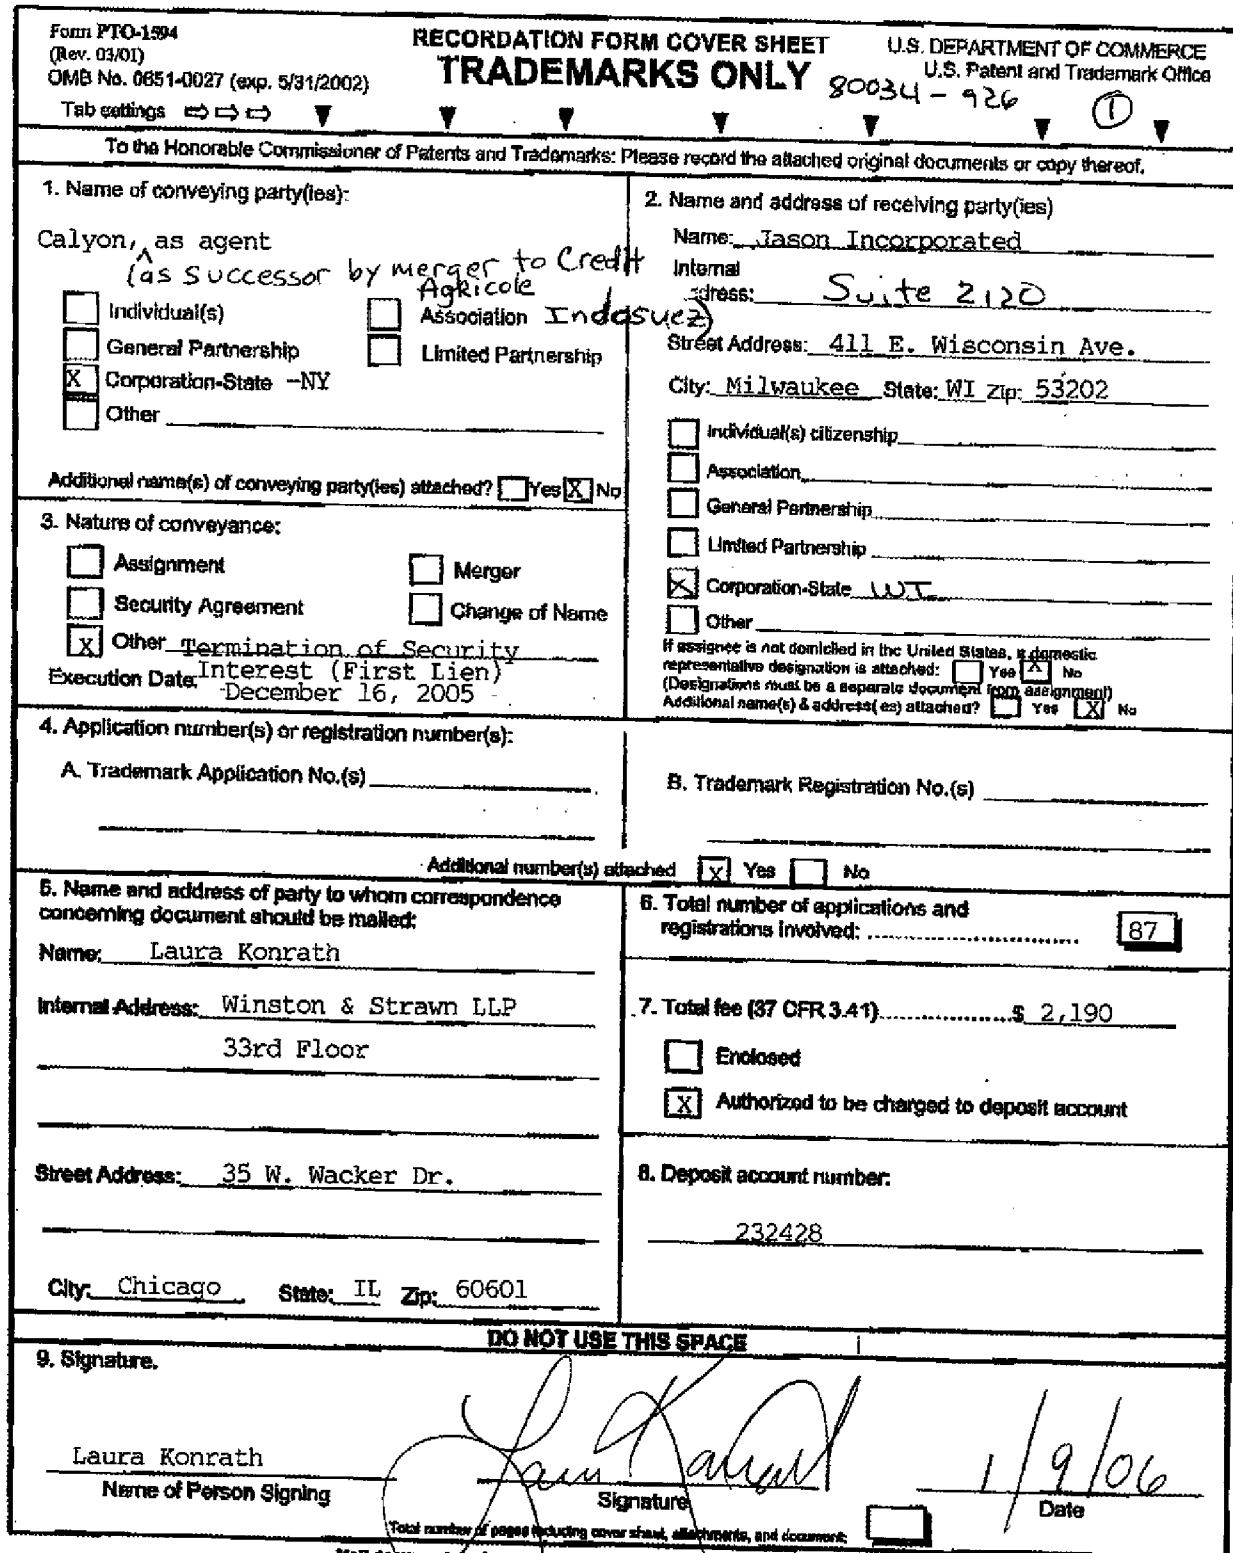 Form PTO-1594
(Rev. 03/01)
OMB No. 0651-0027 (exp. 5/31/2002)
Tab settings
RECORDATION FORM COVER SHEET
TRADEMARKS ONLY
U.S. DEPARTMENT OF COMMERCE
U.S. Patent and Trademark Office
80034-926
1
To the Honorable Commissioner of Patents and Trademarks: Please record the attached original documents or copy thereof.
1. Name of conveying party(ies):
Calyon, as agent
(as successor by merger to Credit
Agricole
Indosuez)
Individual(s)
Association
General Partnership
Limited Partnership
X Corporation-State -NY
Other
Additional name(s) of conveying party(ies) attached? Yes X No
2. Name and address of receiving party(ies)
Name: Jason Incorporated
Internal
dress: Suite 2120
Street Address: 411 E. Wisconsin Ave.
City: Milwaukee State: WI Zip: 53202
Individual(s) citizenship
Association
General Partnership
Limited Partnership
X Corporation-State WI
Other
If assignee is not domiciled in the United States, a domestic
representative designation is attached: Yes X No
(Designations must be a separate document from assignment)
Additional name(s) & address(es) attached? Yes X No
3. Nature of conveyance:
Assignment
Merger
Security Agreement
Change of Name
X Other Termination of Security
Interest (First Lien)
Execution Date: December 16, 2005
4. Application number(s) or registration number(s):
A. Trademark Application No.(s)
B. Trademark Registration No.(s)
Additional number(s) attached X Yes No
5. Name and address of party to whom correspondence
concerning document should be mailed:
Name: Laura Konrath
Internal Address: Winston & Strawn LLP
33rd Floor
Street Address: 35 W. Wacker Dr.
City: Chicago State: IL Zip: 60601
6. Total number of applications and
registrations involved: 87
7. Total fee (37 CFR 3.41) $ 2,190
Enclosed
X Authorized to be charged to deposit account
8. Deposit account number:
232428
DO NOT USE THIS SPACE
9. Signature.
Laura Konrath
Name of Person Signing
Laura Konrath
Signature
1/9/06
Date
Total number of pages including cover sheet, attachments, and document: